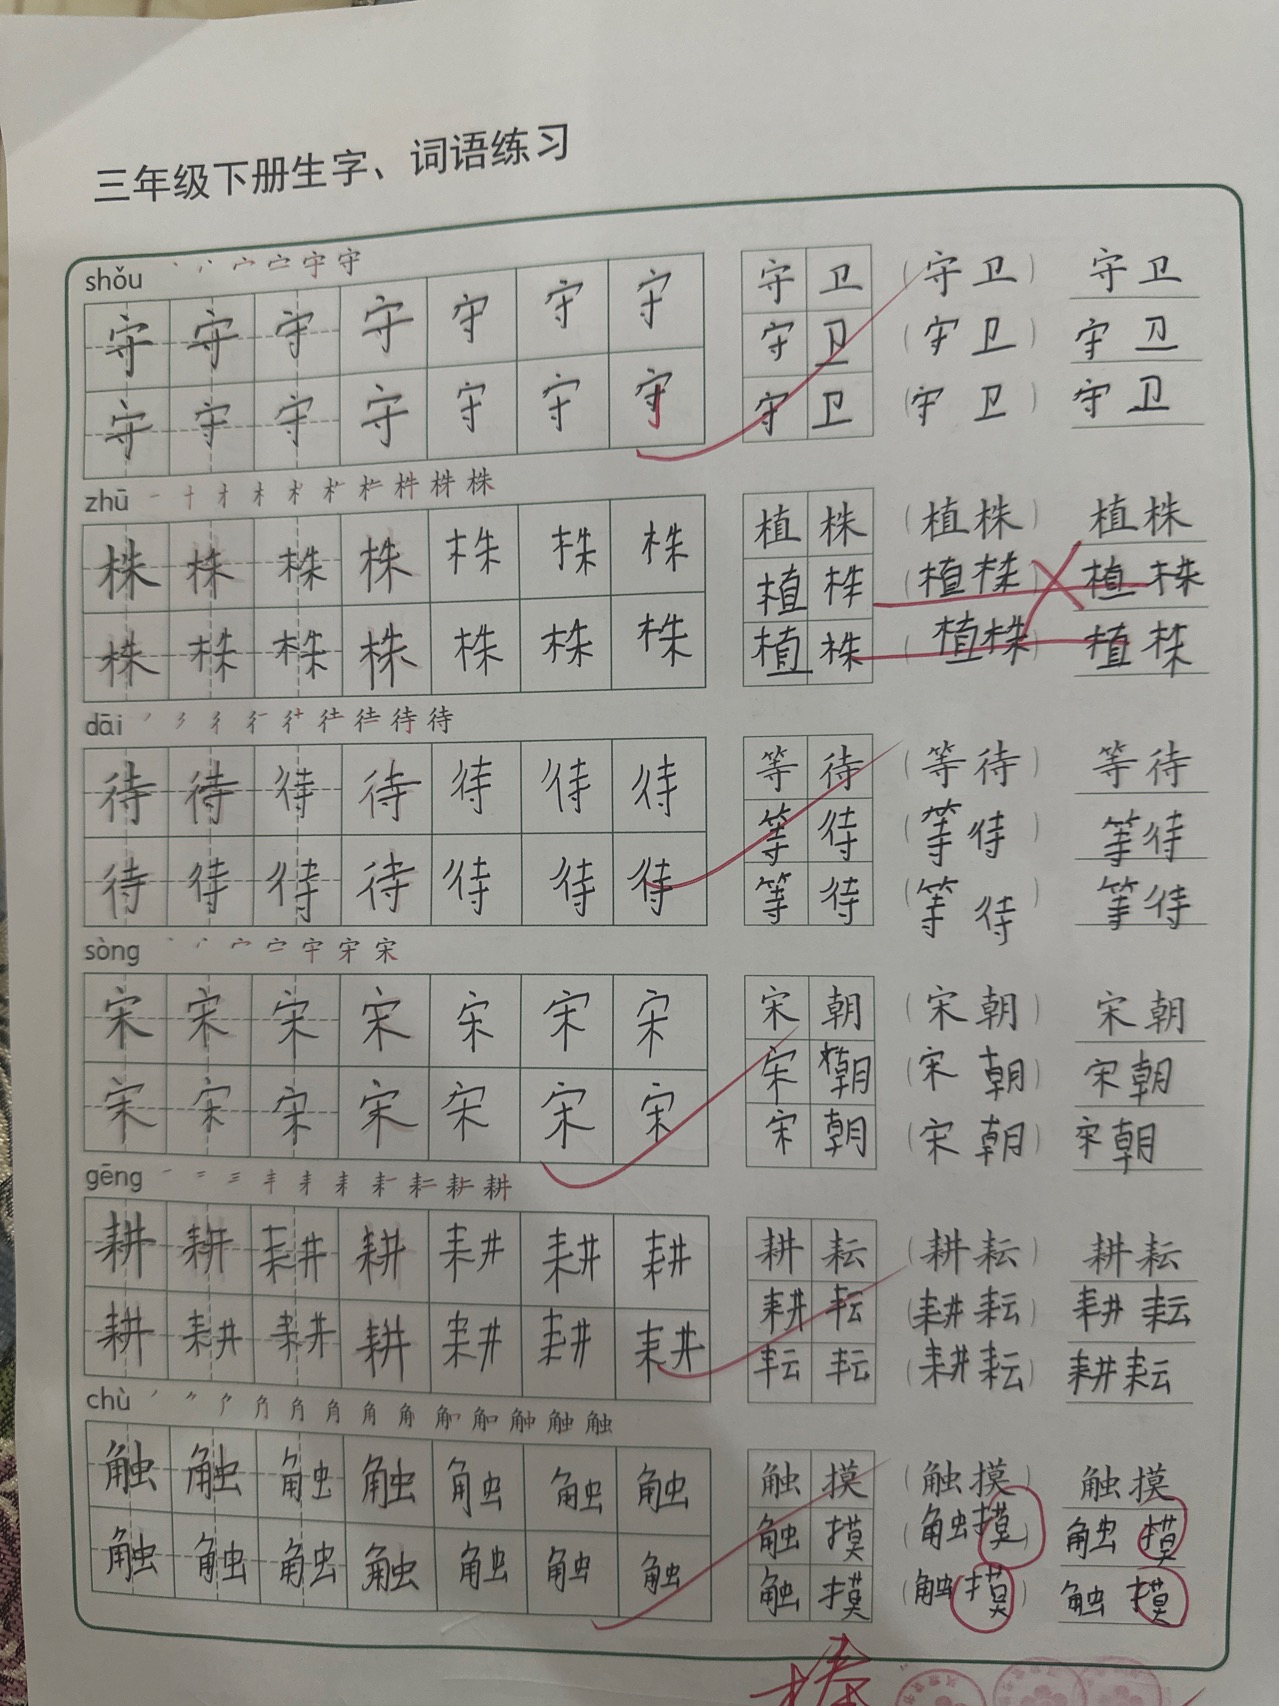 三年级下册生字、词语练习
shǒu 守
守 守 守 守 守 守 守 守 卫 （守 卫） 守 卫
守 卫 （守 卫） 守 卫
守 守 守 守 守 守 守 守 卫 （守 卫） 守 卫
zhū 一 十 才 木 株 株
株 株 株 株 株 株 株 植 株 （植 株） 植 株
植 株 （植 株） 植 株
株 株 株 株 株 株 株 植 株 （植 株） 植 株
dāi 待 待
待 待 待 待 待 待 待 等 待 （等 待） 等 待
等 待 （等 待） 等 待
待 待 待 待 待 待 待 等 待 （等 待） 等 待
sòng 宋
宋 宋 宋 宋 宋 宋 宋 宋 朝 （宋 朝） 宋 朝
宋 朝 （宋 朝） 宋 朝
宋 宋 宋 宋 宋 宋 宋 宋 朝 （宋 朝） 宋 朝
gēng 一 二 三 丰 耒 耕
耕 耕 耕 耕 耕 耕 耕 耕 耘 （耕 耘） 耕 耘
耕 耘 （耕 耘） 耕 耘
耕 耕 耕 耕 耕 耕 耕 耘 耘 （耕 耘） 耕 耘
chù 角 触 触
触 触 触 触 触 触 触 触 摸 （触 摸） 触 摸
触 摸 （触 摸） 触 摸
触 触 触 触 触 触 触 触 摸 （触 摸） 触 摸
棒